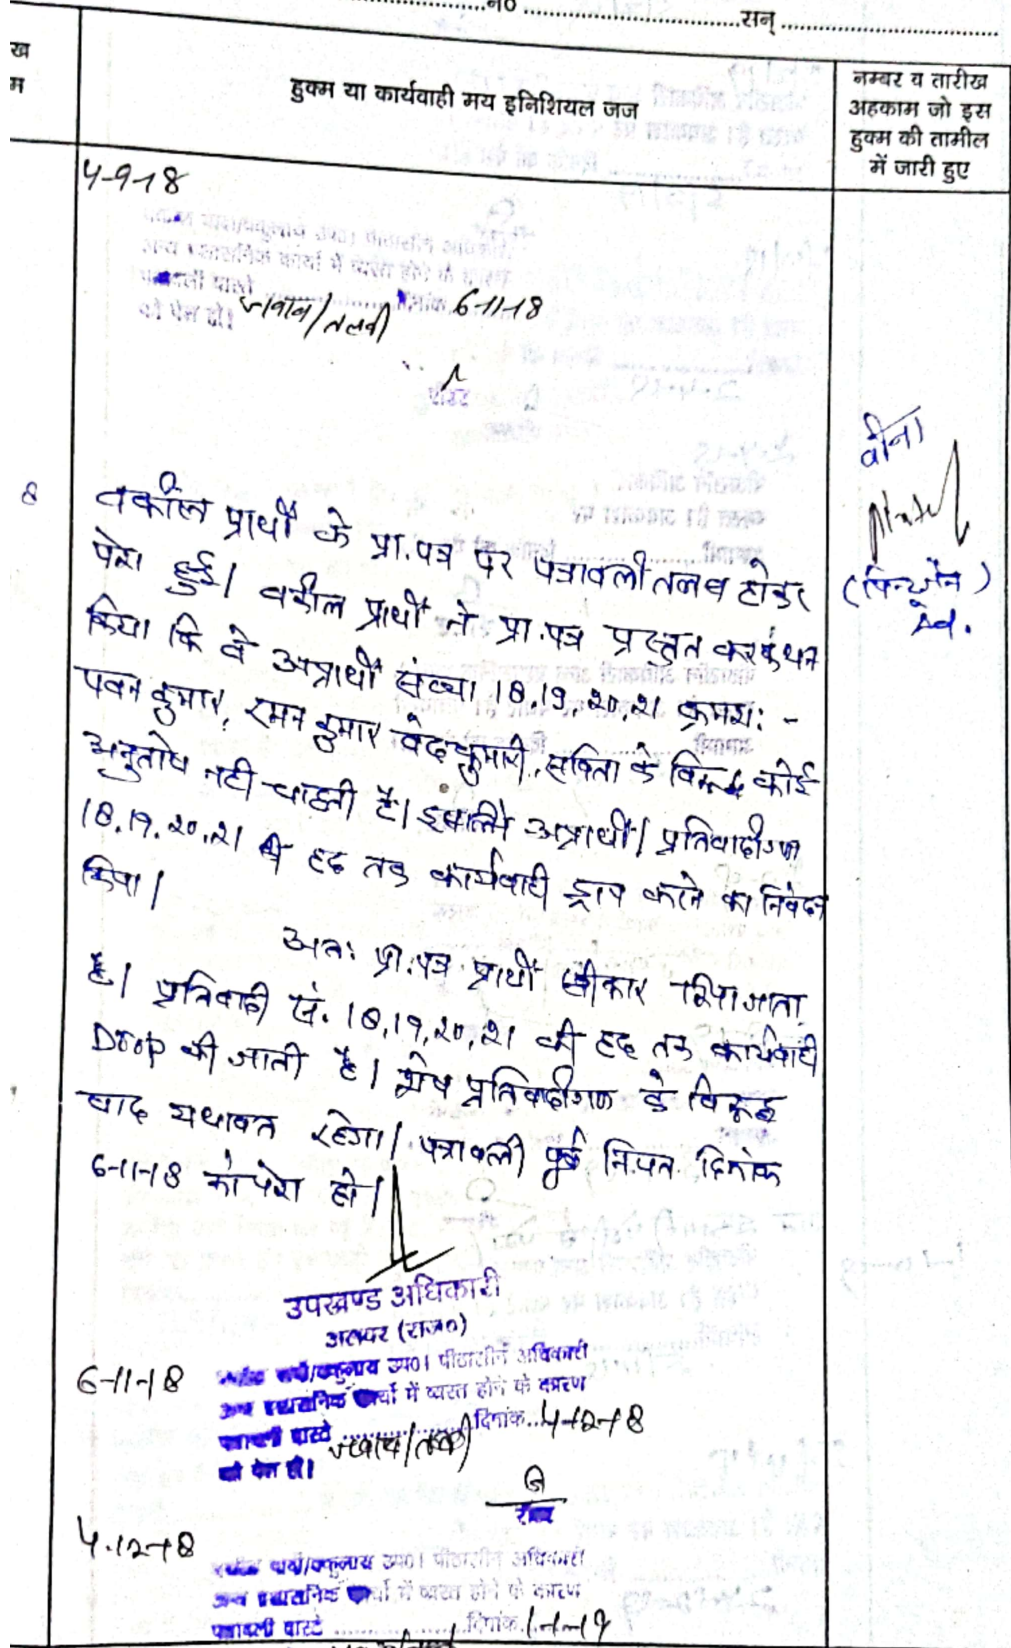 नं० ........ सन् ........
ख
म
हुक्म या कार्यवाही मय इनिशियल जज
नम्बर व तारीख
अहकाम जो इस
हुक्म की तामील
में जारी हुए
4-9-18
अन्य प्रशासनिक कार्यों में व्यस्त होने के कारण
पत्रावली वास्ते जवाब/तलबी दिनांक 6-11-18
को पेश हो।
रीडर
8
वकील प्रार्थी के प्रा.पत्र पर पत्रावली तलब होकर
पेश हुई। वकील प्रार्थी ने प्रा.पत्र प्रस्तुत कर कथन
किया कि वे अप्रार्थी संख्या 18,19,20,21 क्रमश: -
पवन कुमार, रमन कुमार, वेदकुमारी, सविता के विरूद्ध कोई
अनुतोष नहीं चाहती है। इसलिये अप्रार्थी/प्रतिवादीगण
18,19,20,21 की हद तक कार्यवाही ड्राप करने का निवेदन
किया।
अतः प्रा.पत्र प्रार्थी स्वीकार किया जाता
है। प्रतिवादी सं. 18,19,20,21 की हद तक कार्यवाही
Drop की जाती है। शेष प्रतिवादीगण के विरूद्ध
वाद यथावत रहेगा। पत्रावली पूर्व नियत दिनांक
6-11-18 को पेश हो।
Ad.
उपखण्ड अधिकारी
अलवर (राज०)
6-11-18
वकील प्रार्थी/वकुलाय उप०। पीठासीन अधिकारी
अन्य प्रशासनिक कार्यों में व्यस्त होने के कारण
पत्रावली वास्ते जवाब/तलबी दिनांक 4-12-18
को पेश हो।
रीडर
4-12-18
वकील प्रार्थी/वकुलाय उप०। पीठासीन अधिकारी
अन्य प्रशासनिक कार्यों में व्यस्त होने के कारण
पत्रावली वास्ते ........ दिनांक 1-1-19